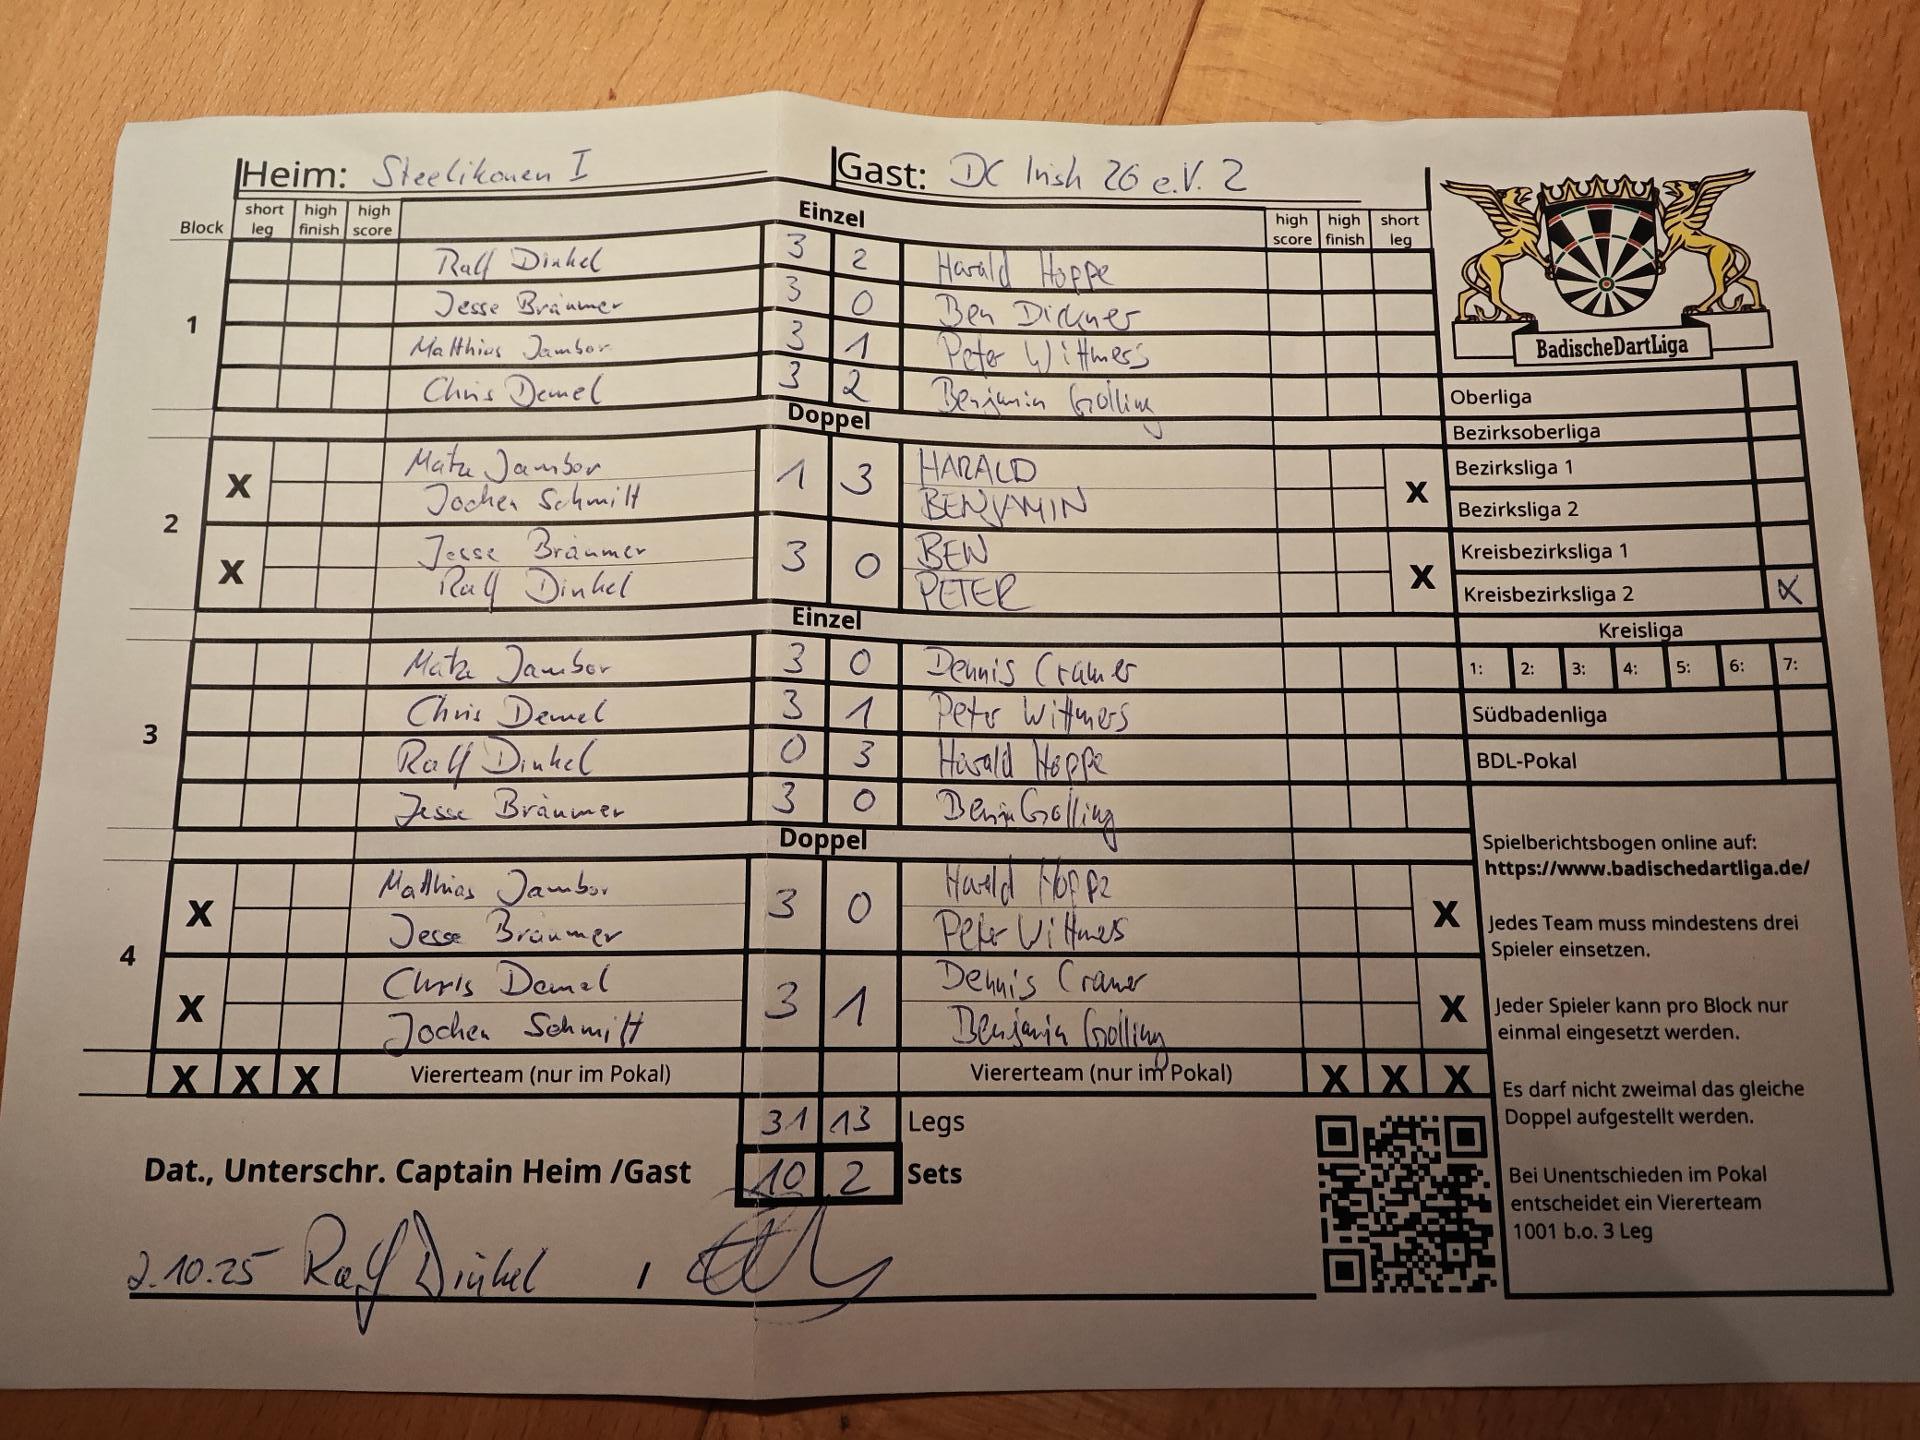 Heim: Steelikonen I Gast: DC Irish 26 e.V. 2
Block short leg high finish high score Einzel high score high finish short leg
1
Ralf Dinkel 3 2 Harald Hoppe
Jesse Bräumer 3 0 Ben Dickner
Matthias Jambor 3 1 Peter Wittmers
Chris Demel 3 2 Benjamin Golling
Doppel
2
X Matze Jambor 1 3 HARALD X
Jochen Schmitt BENJAMIN
X Jesse Bräumer 3 0 BEN X
Ralf Dinkel PETER
Einzel
3
Matze Jambor 3 0 Dennis Cramer
Chris Demel 3 1 Peter Wittmers
Ralf Dinkel 0 3 Harald Hoppe
Jesse Bräumer 3 0 Benja Golling
Doppel
4
X Matthias Jambor 3 0 Harald Hoppe X
Jesse Bräumer Peter Wittmers
X Chris Demel 3 1 Dennis Cramer X
Jochen Schmitt Benjamin Golling
X X X Viererteam (nur im Pokal) Viererteam (nur im Pokal) X X X
31 13 Legs
Dat., Unterschr. Captain Heim /Gast 10 2 Sets
2.10.25 Ralf Dinkel /
BadischeDartLiga
Oberliga
Bezirksoberliga
Bezirksliga 1
Bezirksliga 2
Kreisbezirksliga 1
Kreisbezirksliga 2 X
Kreisliga
1: 2: 3: 4: 5: 6: 7:
Südbadenliga
BDL-Pokal
Spielberichtsbogen online auf:
https://www.badischedartliga.de/
Jedes Team muss mindestens drei
Spieler einsetzen.
Jeder Spieler kann pro Block nur
einmal eingesetzt werden.
Es darf nicht zweimal das gleiche
Doppel aufgestellt werden.
Bei Unentschieden im Pokal
entscheidet ein Viererteam
1001 b.o. 3 Leg